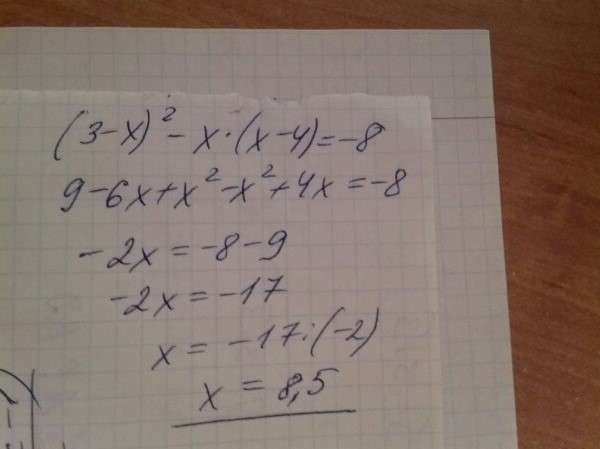 (3-x)² - x·(x-4)=-8
9-6x+x²-x²+4x=-8
-2x=-8-9
-2x=-17
x=-17:(-2)
x=8,5